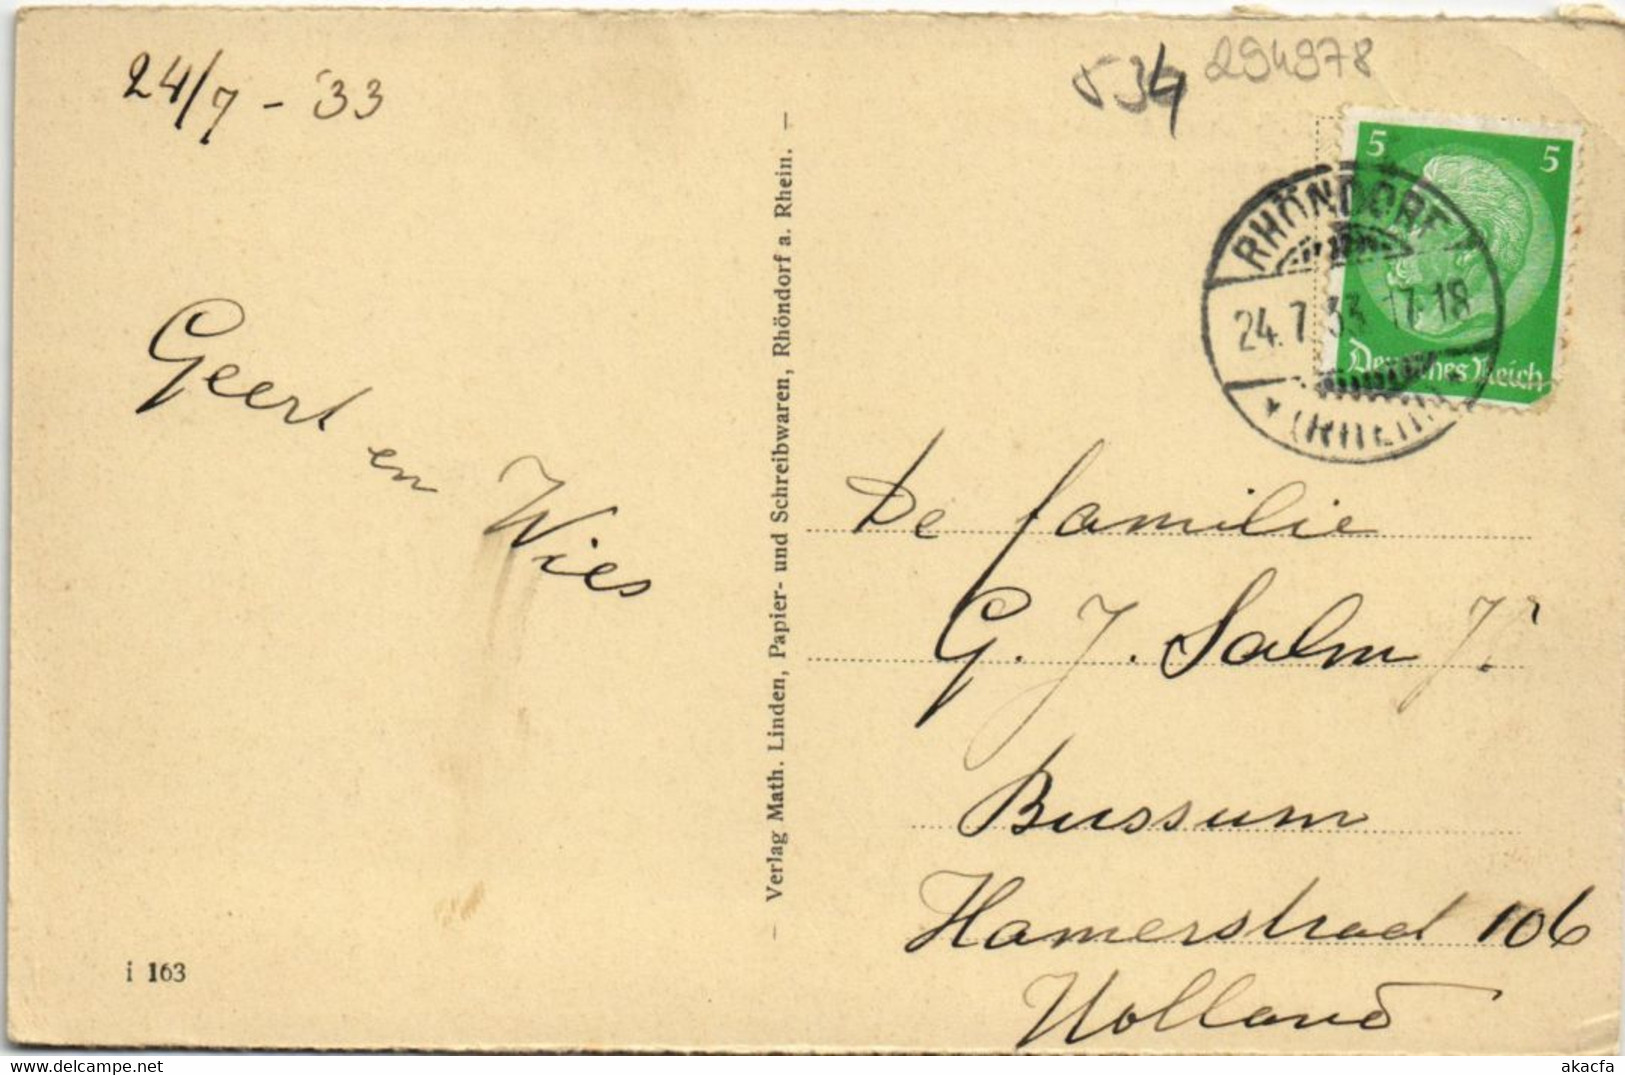 24/7 - '33
534 294978
5 5
Deutsches Reich
RHÖNDORF
24.7.33 17-18
(RHEIN)
Geert en Wies
Verlag Math. Linden, Papier- und Schreibwaren, Rhöndorf a. Rhein.
De familie
G. J. Salm Jr.
Bussum
Hamerstraat 106
Holland
i 163
akacfa